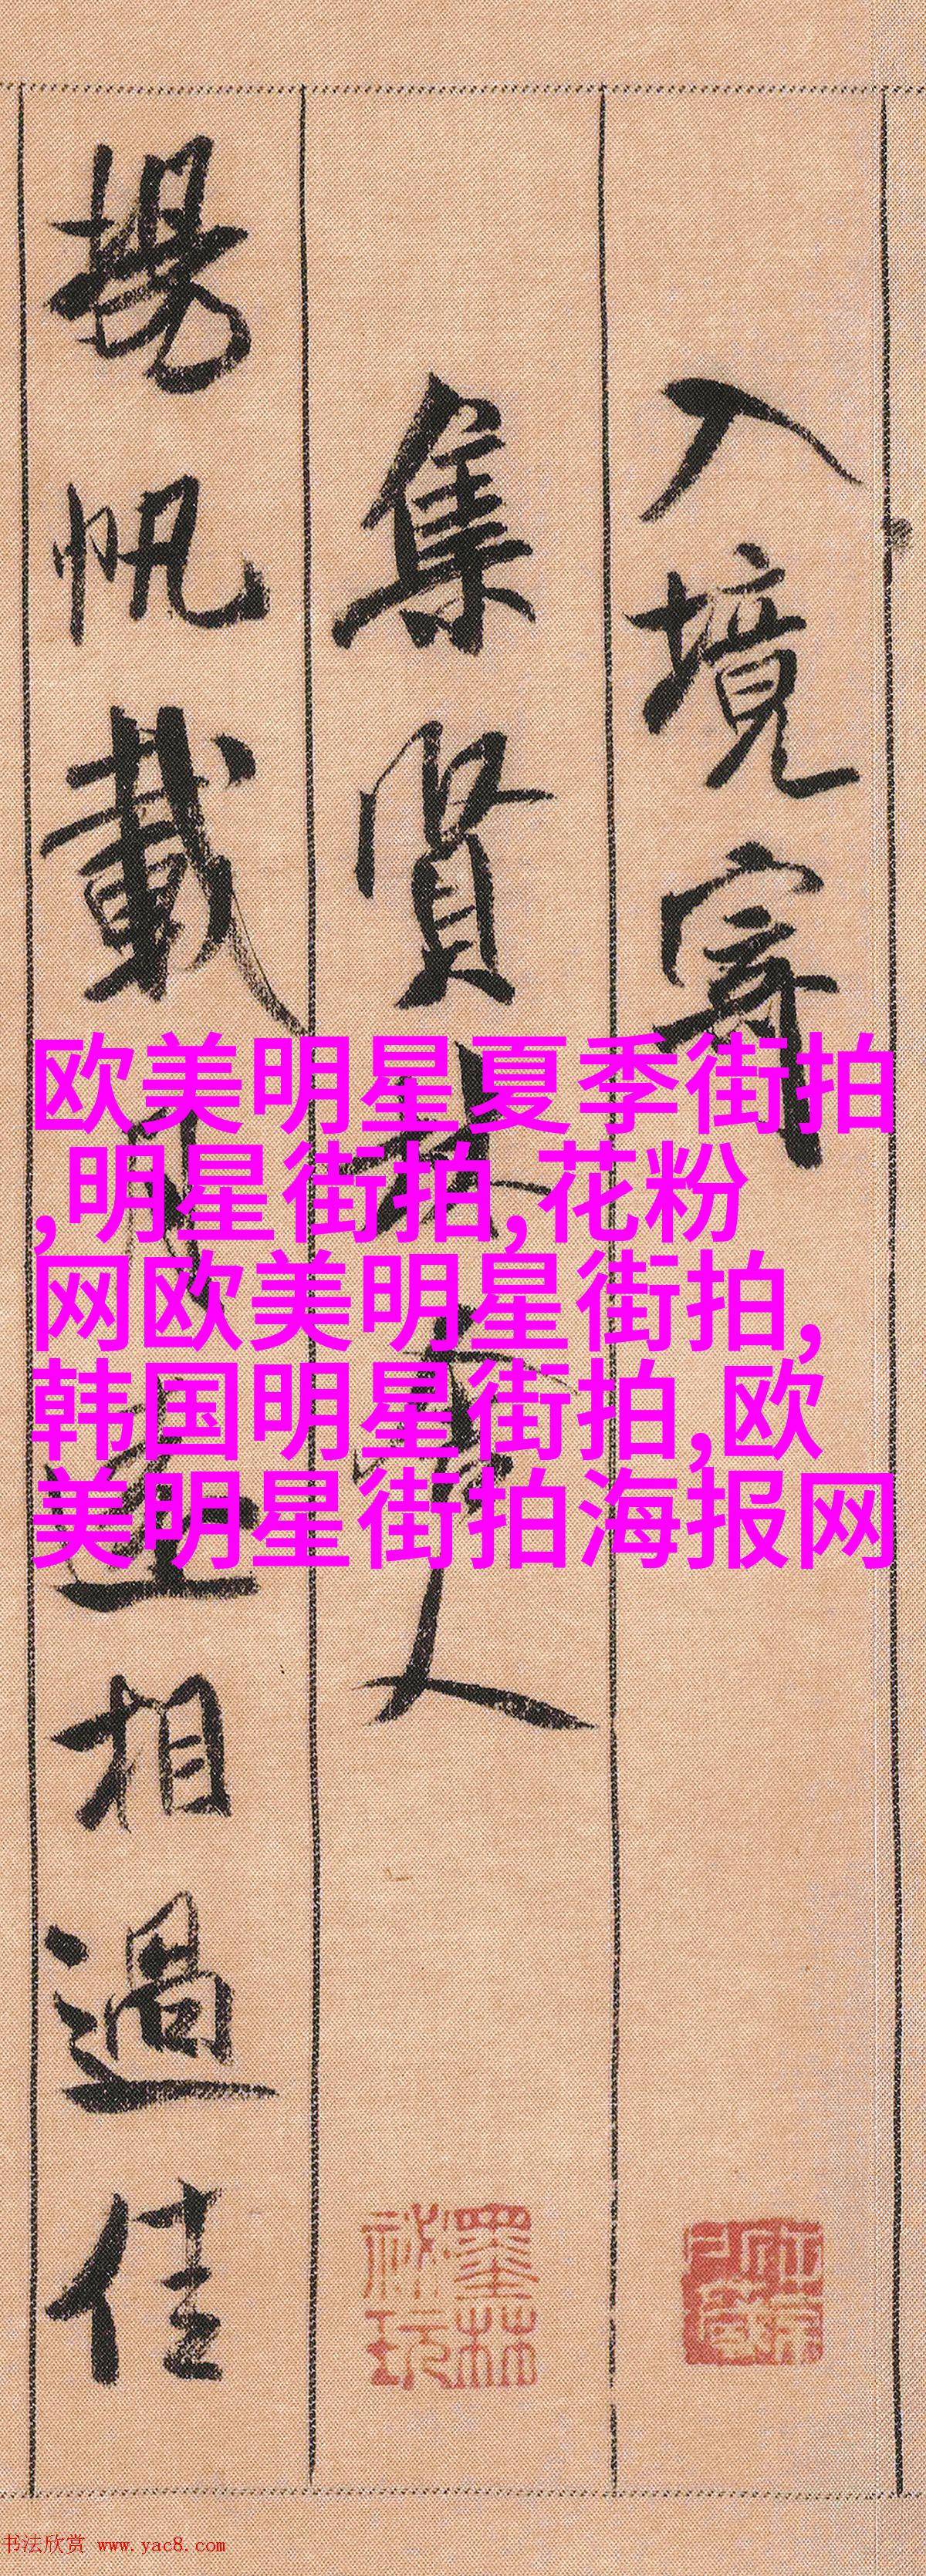 入境寄
集賢林舍人
揚帆載月遠相過佳
欧美明星夏季街拍
,明星街拍,花粉
网欧美明星街拍,
韩国明星街拍,欧
美明星街拍海报网
墨林
祕玩
书法欣赏 www.yac8.com